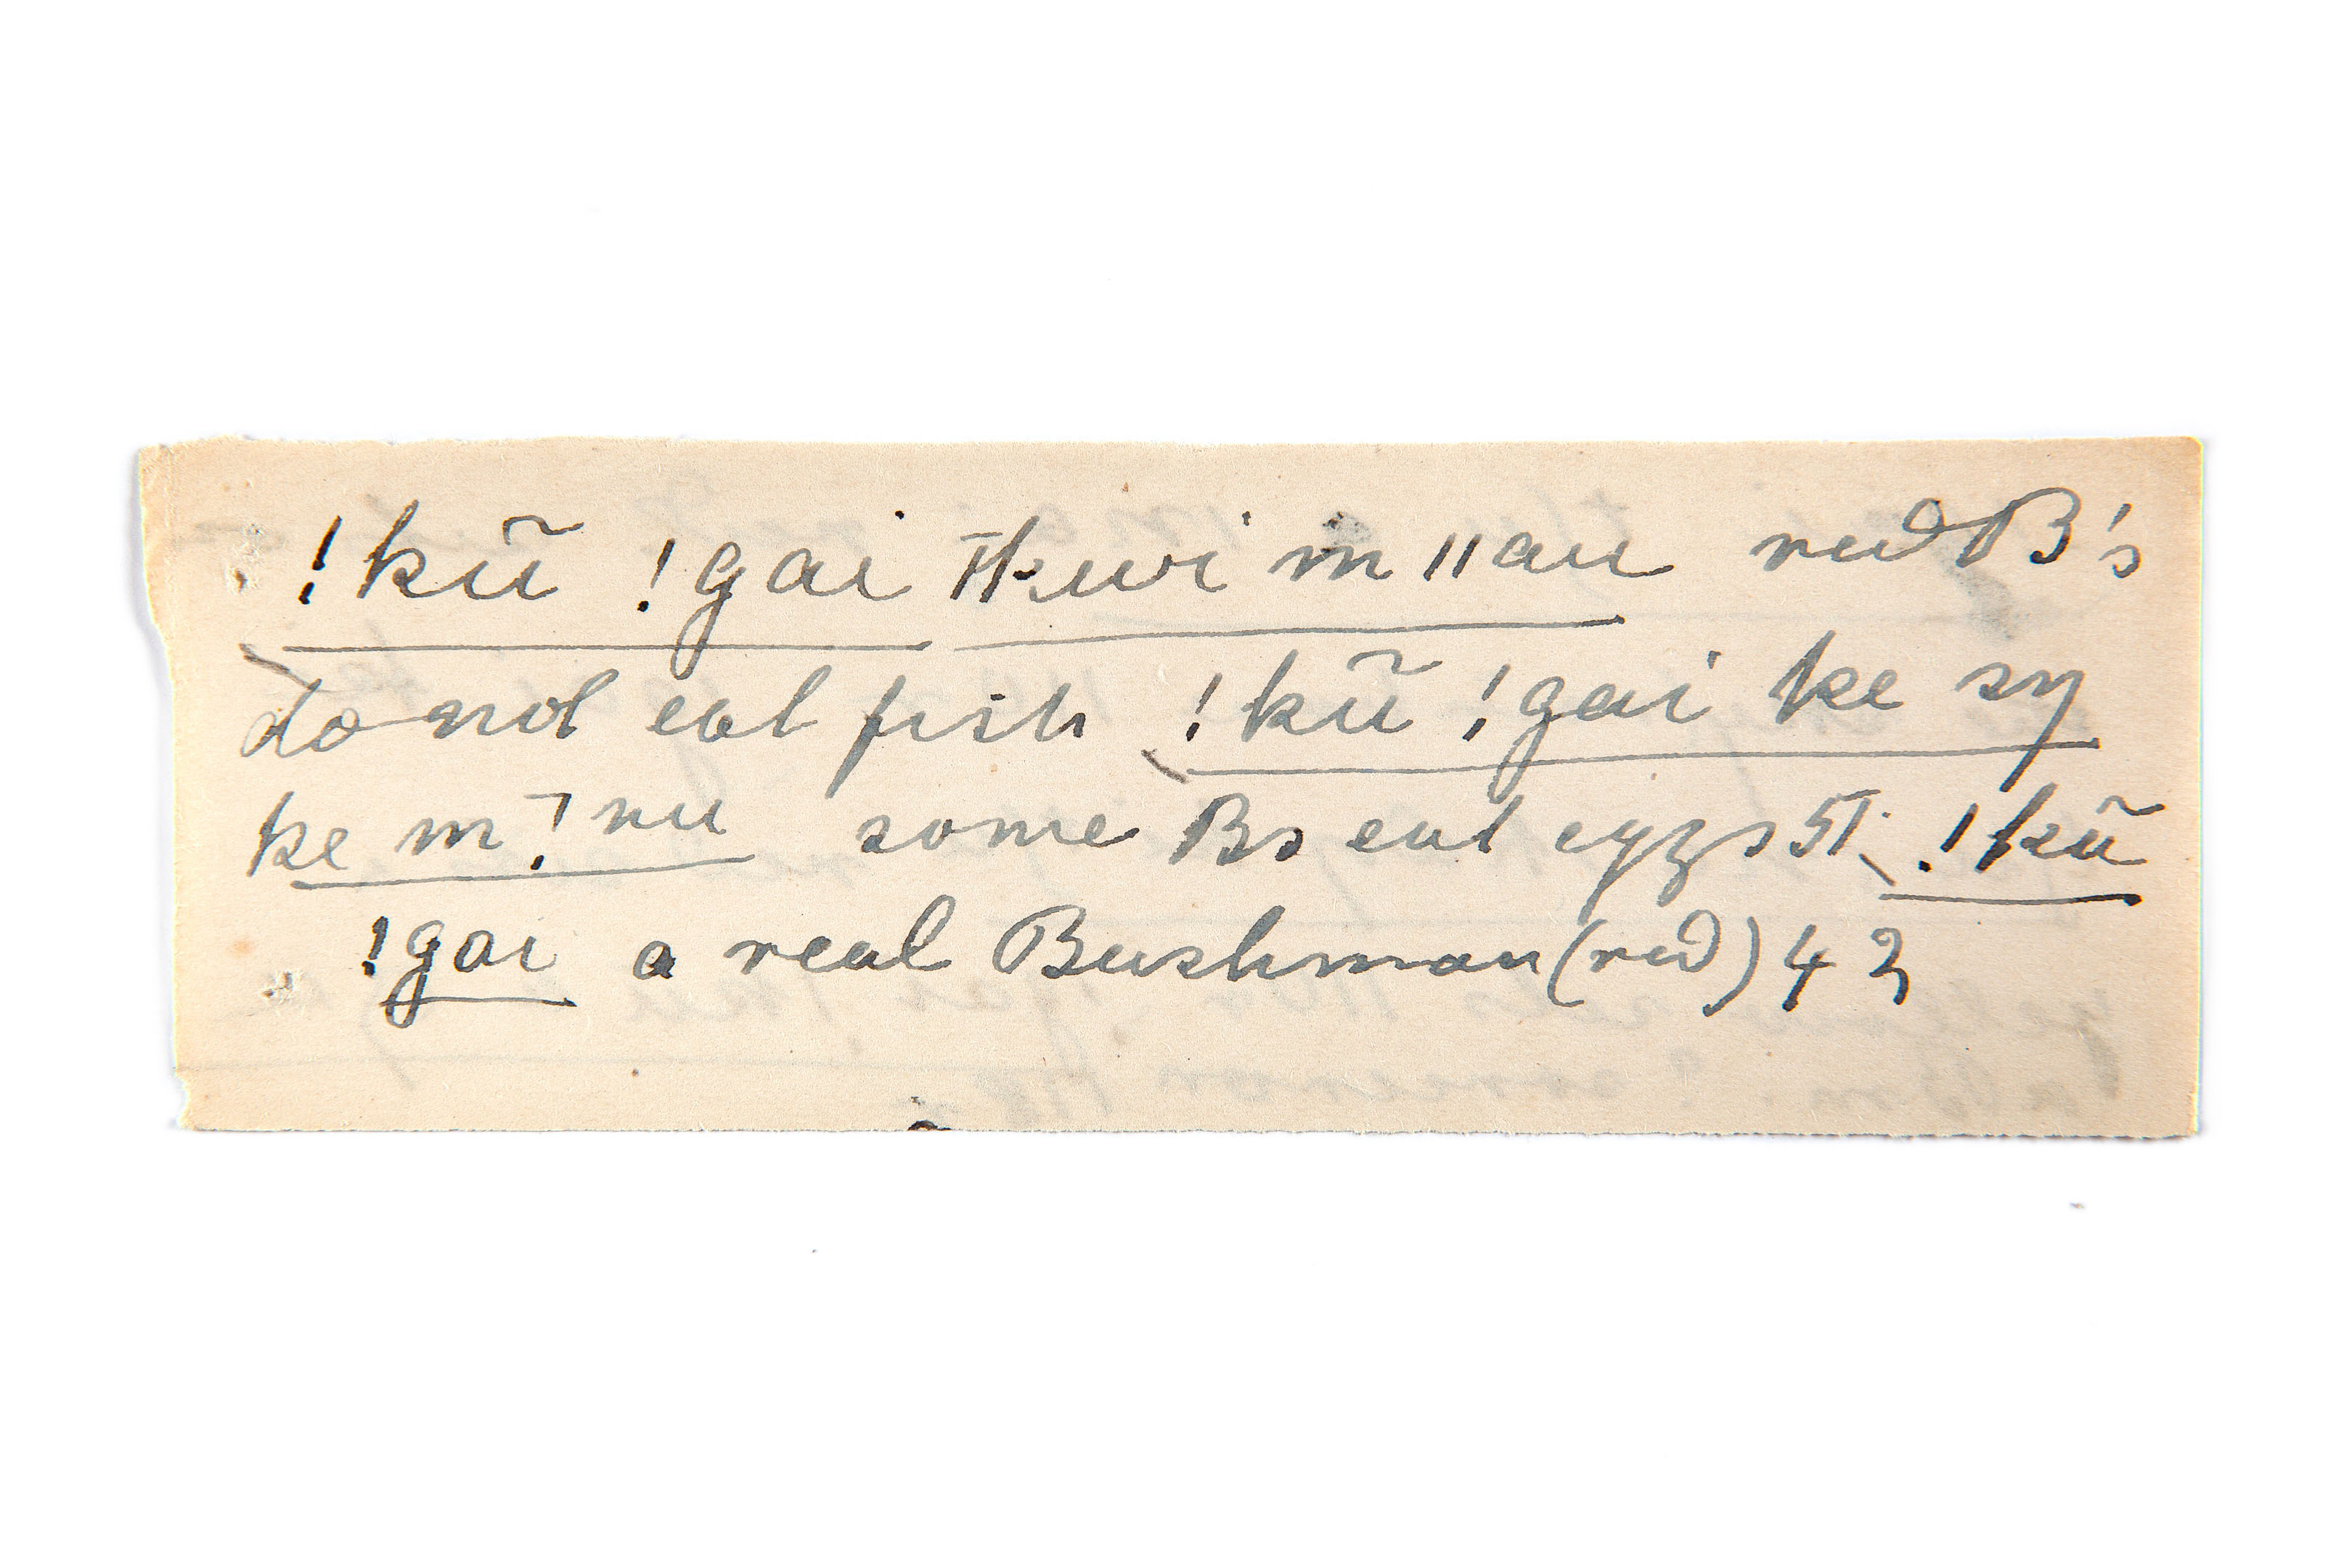 !kũ !gai ǁkwi m ǁau red B's
do not eat fish !kũ !gai ke sy
ke m !nu some Bs eat eggs 51. !kũ
!gai a real Bushman (red) 43